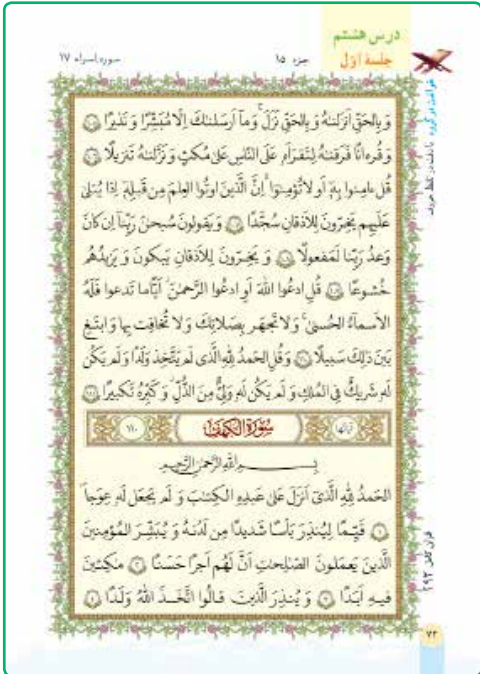 درس هشتم
جلسهٔ اوّل
جزء ۱۵
سوره اسراء ۱۷
وَ بِالحَقِّ اَنزَلنٰهُ وَ بِالحَقِّ نَزَلَ ۗ وَ ما اَرسَلنٰكَ اِلّا مُبَشِّرًا وَ نَذيرًا ۱۰۵
وَ قُرءانًا فَرَقنٰهُ لِتَقرَاَهٗ عَلَى النّاسِ عَلىٰ مُكثٍ وَ نَزَّلنٰهُ تَنزيلًا ۱۰۶
قُل ءامِنوا بِهٖ اَو لا تُؤمِنوا ۚ اِنَّ الَّذينَ اوتُوا العِلمَ مِن قَبلِهٖ اِذا يُتلىٰ
عَلَيهِم يَخِرّونَ لِلاَذقانِ سُجَّدًا ۱۰۷ وَ يَقولونَ سُبحٰنَ رَبِّنا اِن كانَ
وَعدُ رَبِّنا لَمَفعولًا ۱۰۸ وَ يَخِرّونَ لِلاَذقانِ يَبكونَ وَ يَزيدُهُم
خُشوعًا ۱۰۹ قُلِ ادعُوا اللهَ اَوِ ادعُوا الرَّحمٰنَ ۖ اَيًّا ما تَدعوا فَلَهُ
الاَسماءُ الحُسنىٰ ۚ وَ لا تَجهَر بِصَلاتِكَ وَ لا تُخافِت بِها وَ ابتَغِ
بَينَ ذٰلِكَ سَبيلًا ۱۱۰ وَ قُلِ الحَمدُ لِلّٰهِ الَّذى لَم يَتَّخِذ وَلَدًا وَ لَم يَكُن
لَهٗ شَريكٌ فِى المُلكِ وَ لَم يَكُن لَهٗ وَلِىٌّ مِنَ الذُّلِّ ۖ وَ كَبِّرهُ تَكبيرًا ۱۱۱
سُورَةُ الكَهف
۱۱۰
بِسمِ اللهِ الرَّحمٰنِ الرَّحيمِ
اَلحَمدُ لِلّٰهِ الَّذى اَنزَلَ عَلىٰ عَبدِهِ الكِتٰبَ وَ لَم يَجعَل لَهٗ عِوَجًا
۱ قَيِّمًا لِيُنذِرَ بَأسًا شَديدًا مِن لَدُنهُ وَ يُبَشِّرَ المُؤمِنينَ
الَّذينَ يَعمَلونَ الصّٰلِحٰتِ اَنَّ لَهُم اَجرًا حَسَنًا ۲ مٰكِثينَ
فيهِ اَبَدًا ۳ وَ يُنذِرَ الَّذينَ قالُوا اتَّخَذَ اللهُ وَلَدًا ۴
۷۲